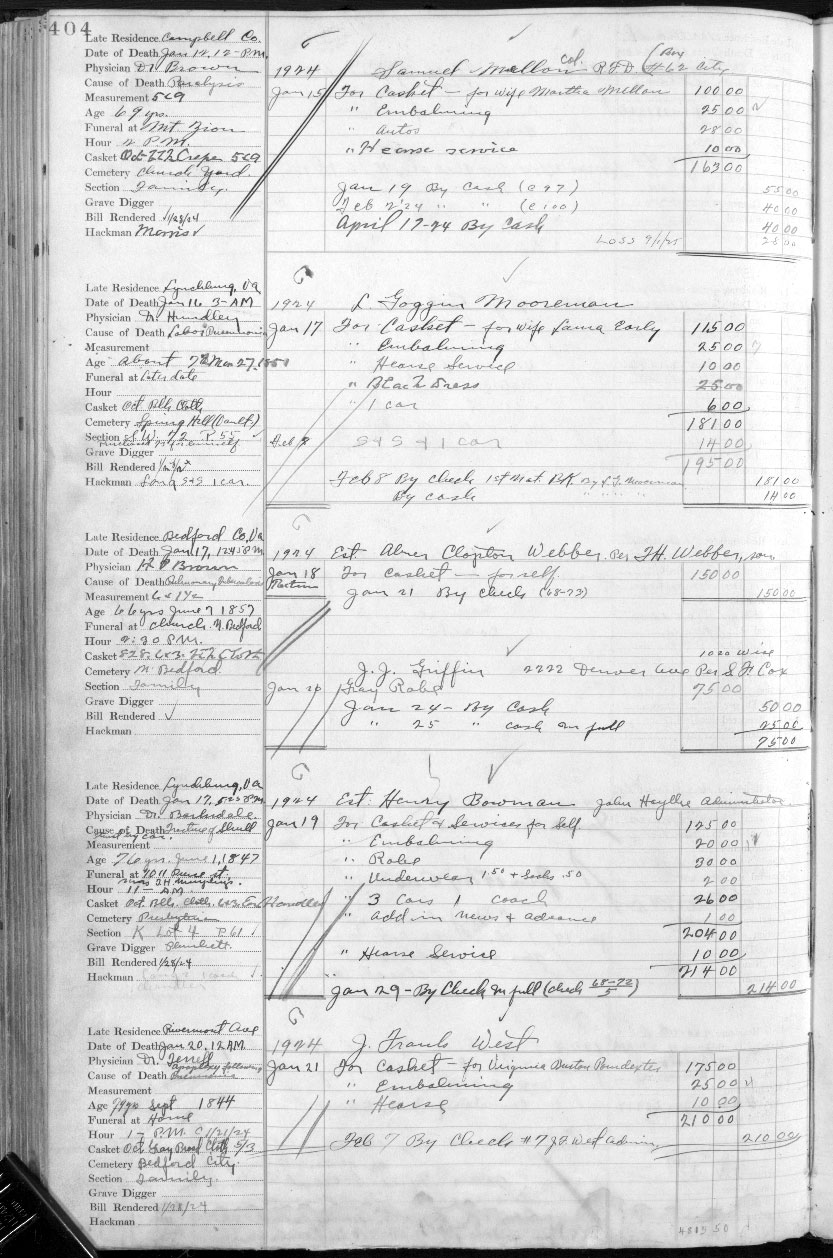 404
Late Residence Campbell Co.
Date of Death Jan 14, 12-P.M.
Physician Dr. Brown
Cause of Death Paralysis
Measurement 5x9
Age 69 yrs.
Funeral at Mt Zion
Hour 2 P.M.
Casket Oct Crepe 569
Cemetery Church Yard
Section Family
Grave Digger
Bill Rendered 1/28/24
Hackman Morris
1924 Samuel Mellon Col. RFD (Box #62 City
Jan 15 For Casket - for wife Martha Mellon 100 00
" Embalming 25 00
" Autos 28 00
" Hearse service 10 00
163 00
Jan 19 By Cash (C97) 55 00
Feb 2 '24 " " (C100) 40 00
April 17-24 By Cash 40 00
Loss 28 00
Late Residence Lynchburg, Va
Date of Death Jan 16 3-AM
Physician Dr. Hundley
Cause of Death Lobar Pneumonia
Measurement
Age about 72 Mar 27,
Funeral at Later date
Hour
Casket Oct Blk Cloth
Cemetery Spring Hill (Vault)
Section
Grave Digger
Bill Rendered
Hackman Long S&S 1 car.
1924 L. Goggin Mooreman
Jan 17 For Casket - for wife Laura Early 115 00
" Embalming 25 00
" Hearse Service 10 00
" Black Dress 25 00
" 1 car 6 00
181 00
Feb 8 S&S & 1 car 14 00
195 00
Feb 8 By Check 1st Nat. BK. By 181 00
By cash " " " " 14 00
Late Residence Bedford Co, Va
Date of Death Jan 17, 1245 P.M
Physician Brown
Cause of Death Pulmonary Tuberculosis
Measurement 6 x 1 1/2
Age 66 yrs June 7 1857
Funeral at Church N. Bedford
Hour 2:30 P.M.
Casket
Cemetery N. Bedford
Section Family
Grave Digger
Bill Rendered
Hackman
1924 Est. Abner Clopton Webber. Per T.H. Webber, son
Jan 18 For casket - for self. 150 00
Jan 21 By Check (68-73) 150 00
1020 Wise
J. J. Griffin 2222 Denver Ave Per S. H. Cox
Jan 20 Gray Robe 75 00
Jan 24 - By Cash 50 00
" 25 " cash in full 25 00
75 00
Late Residence Lynchburg, Va
Date of Death Jan 17, P.M.
Physician Dr. Barksdale
Cause of Death Fracture of Skull
Measurement
Age 76 yrs. June 1, 1847
Funeral at
Hour 11 - AM
Casket Oct. Blk. Cloth. 6x3. Handles
Cemetery Presbyterian
Section K Lot 4 P 61
Grave Digger
Bill Rendered 1/28/24
Hackman
1924 Est. Henry Bowman Administrator
Jan 19 For Casket & Services for Self. 125 00
" Embalming 20 00
" Robe 30 00
" Underwear 1.50 + Socks .50 2 00
" 3 Cars 1 coach 26 00
" add in news & advance 1 00
204 00
" Hearse Service 10 00
214 00
Jan 29 - By Check in full (check 68-72/5) 214 00
Late Residence Rivermont Ave
Date of Death Jan 20, 12 AM
Physician Dr. Terrell
Cause of Death apoplexy following
Measurement
Age 79 yrs Sept 1844
Funeral at Home
Hour 1 - P.M. 1/21/24
Casket Oct Gray Broad Cloth 5/3
Cemetery Bedford City
Section Family
Grave Digger
Bill Rendered 1/28/24
Hackman
1924 J. Frank West
Jan 21 For Casket - for Virginia Burton Poindexter 175 00
" Embalming 25 00
" Hearse 10 00
210 00
Feb 7 By Check #7 J F West admin 210 00